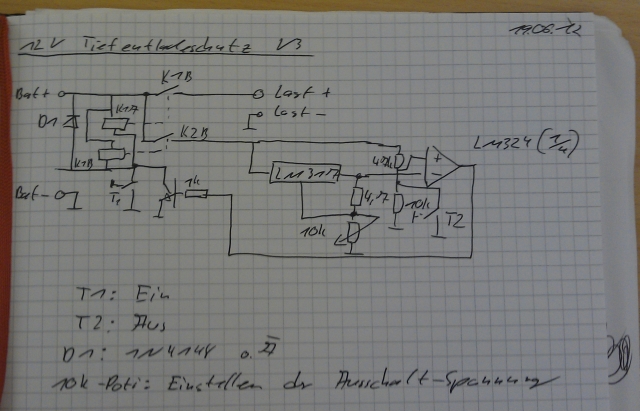 19.06.12
12V Tiefentladeschutz V3
Bat+ K1B Last +
Last -
D1 K1A
K2B LM324 (1/4)
K1B LM317
Bat- T1 1k 4,7 10k T2
10k
T1: Ein
T2: Aus
D1: 1N4148 o.Ä
10k-Poti: Einstellen der Ausschalt-Spannung